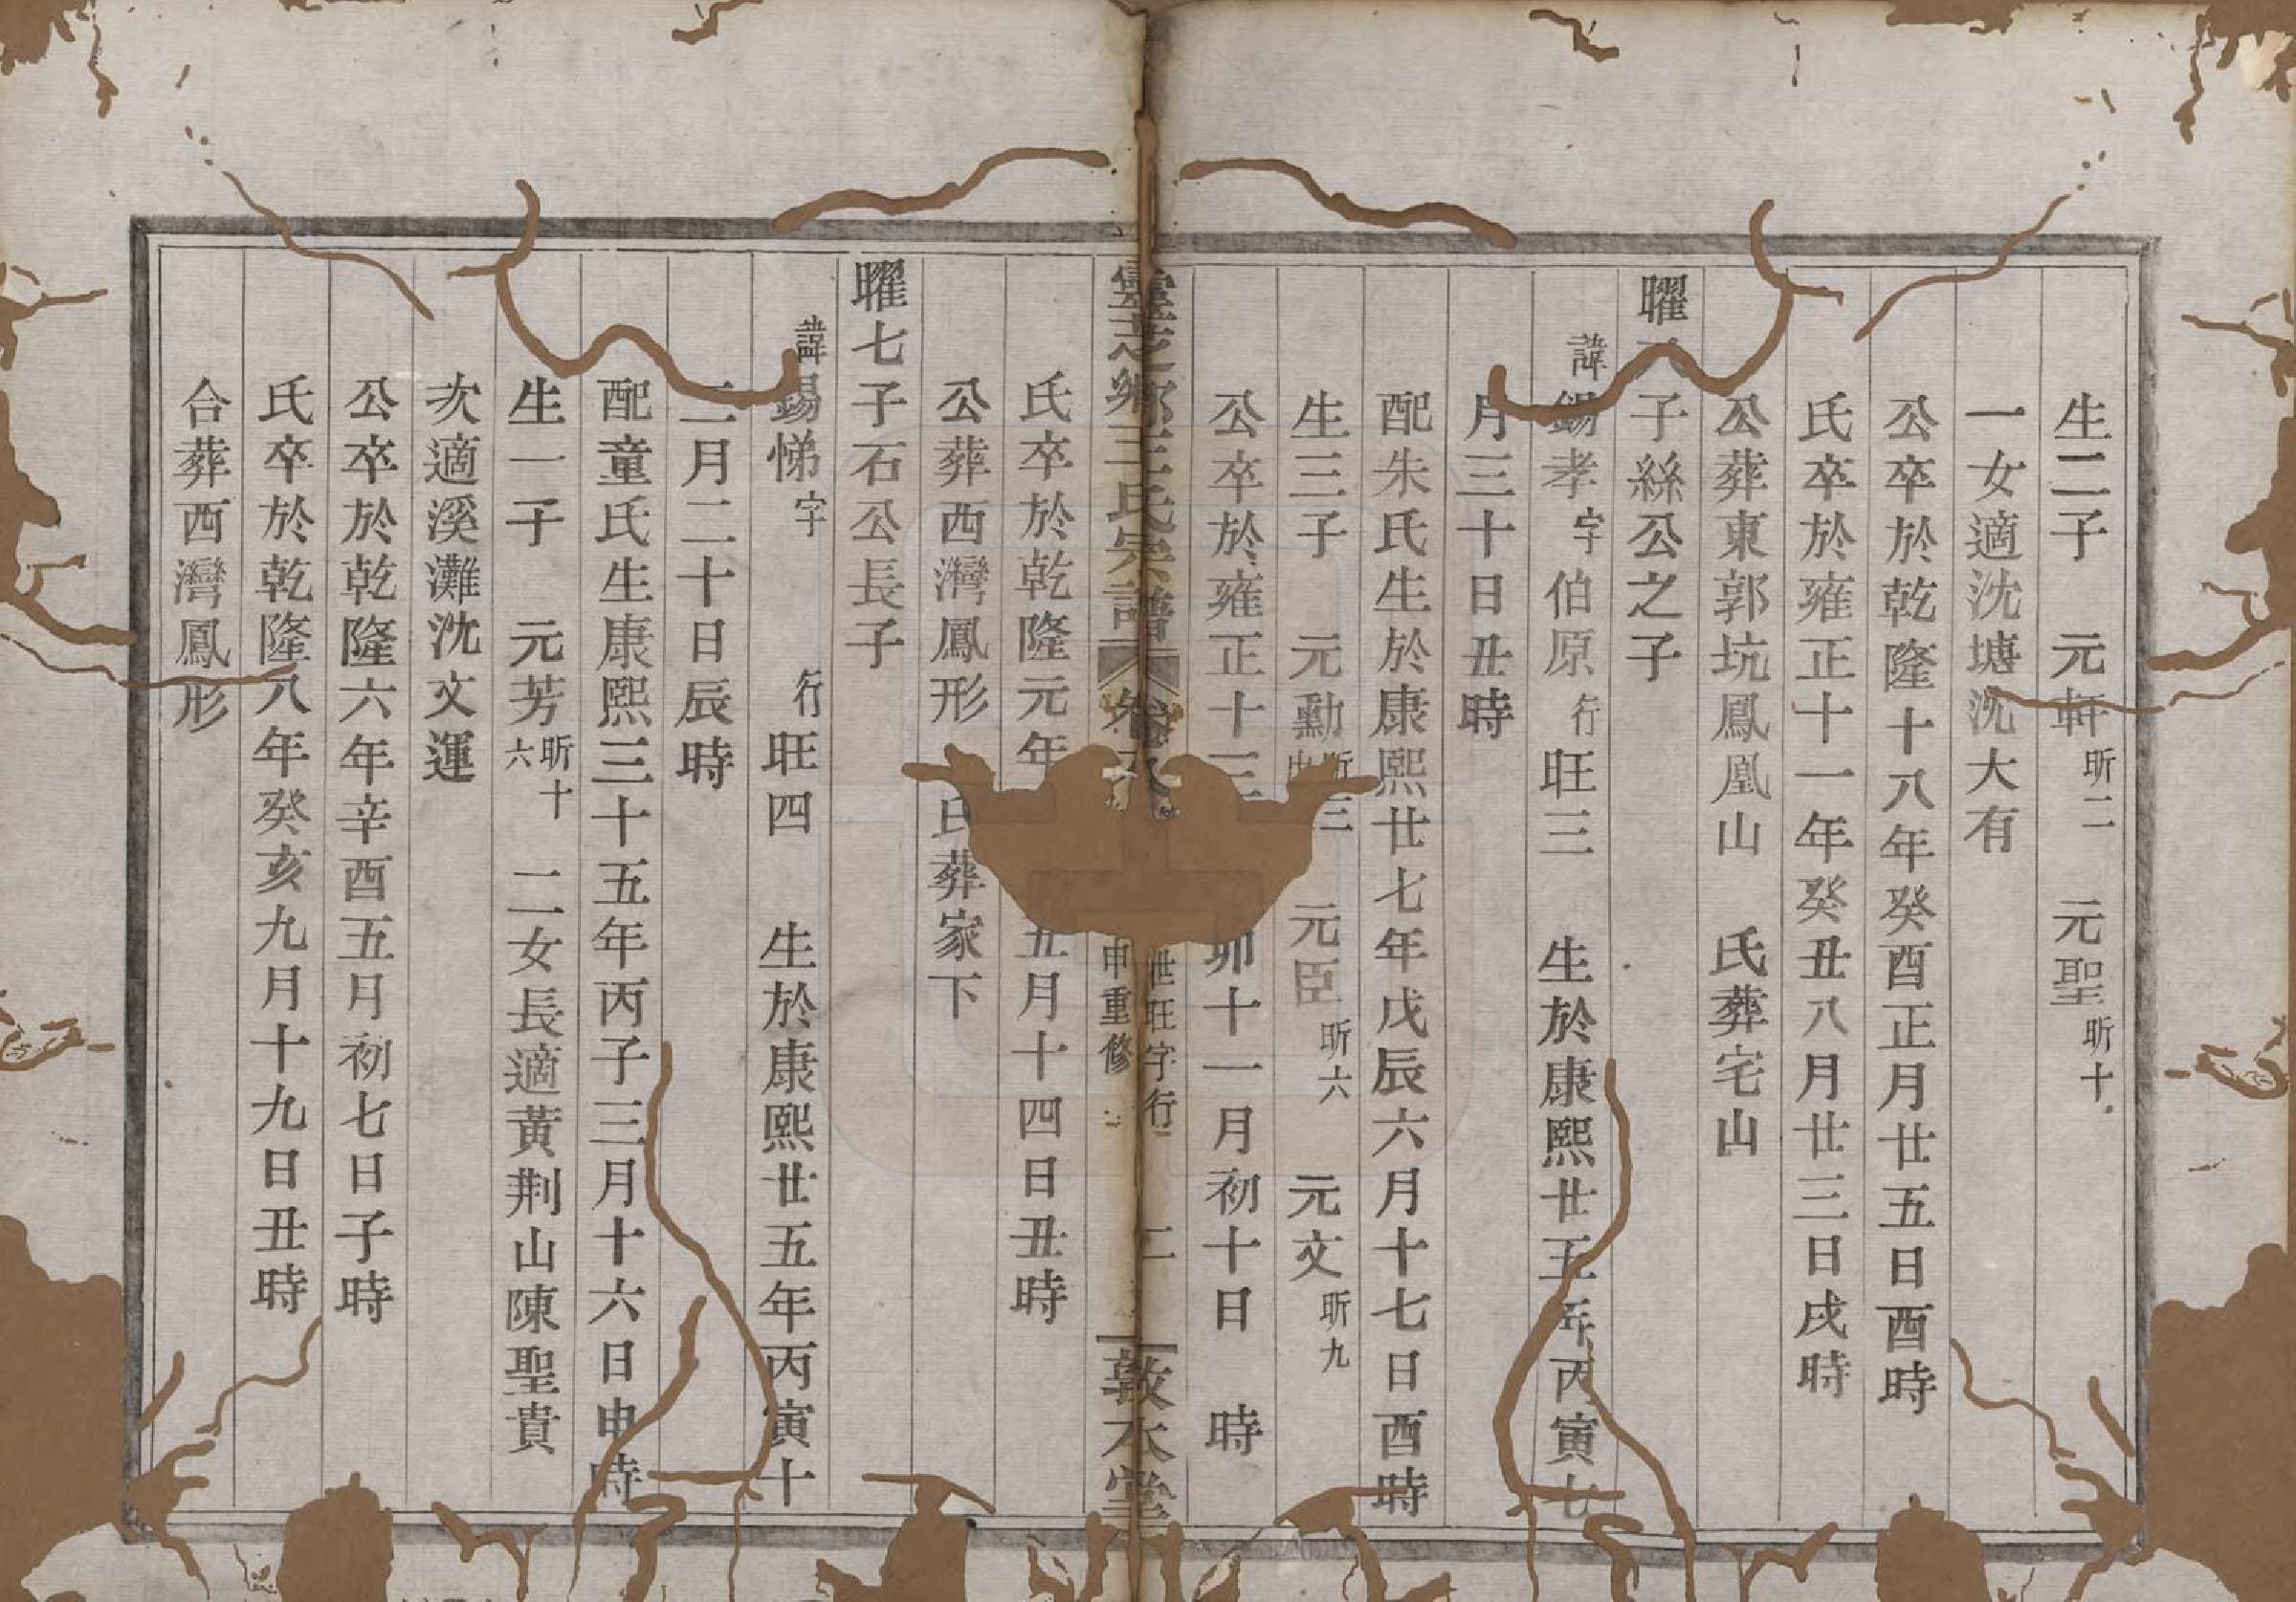 生二子 元軒昕二 元聖昕十
一女適沈塘沈大有
公卒於乾隆十八年癸酉正月廿五日酉時
氏卒於雍正十一年癸丑八月廿三日戌時
公葬東郭坑鳳凰山 氏葬宅山
曜 子絲公之子
諱錫孝字伯原行旺三 生於康熙廿五年丙寅七
月三十日丑時
配朱氏生於康熙廿七年戊辰六月十七日酉時
生三子 元勳昕三 元臣昕六 元文昕九
公卒於雍正十三 卯十一月初十日 時
靈芝鄉王氏宗譜 卷 世旺字行 二 申重修 敦本堂
氏卒於乾隆元年 五月十四日丑時
公葬西灣鳳形 氏葬家下
曜七子石公長子
諱錫悌字 行旺四 生於康熙廿五年丙寅十
二月二十日辰時
配童氏生康熙三十五年丙子三月十六日申時
生一子 元芳昕十六 二女長適黃荆山陳聖貴
次適溪灘沈文運
公卒於乾隆六年辛酉五月初七日子時
氏卒於乾隆八年癸亥九月十九日丑時
合葬西灣鳳形